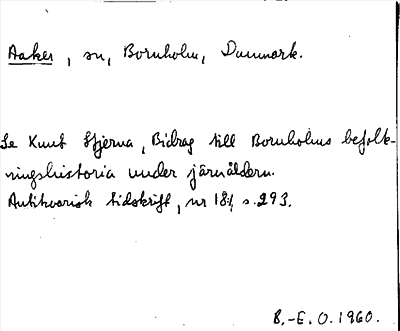 Aaker, sn, Bornholm, Danmark.
Se Knut Stjerna, Bidrag till Bornholms befolk-
ningshistoria under järnåldern.
Antikvarisk tidskrift, nr 18:1, s. 293.
B.-E. O. 1960.